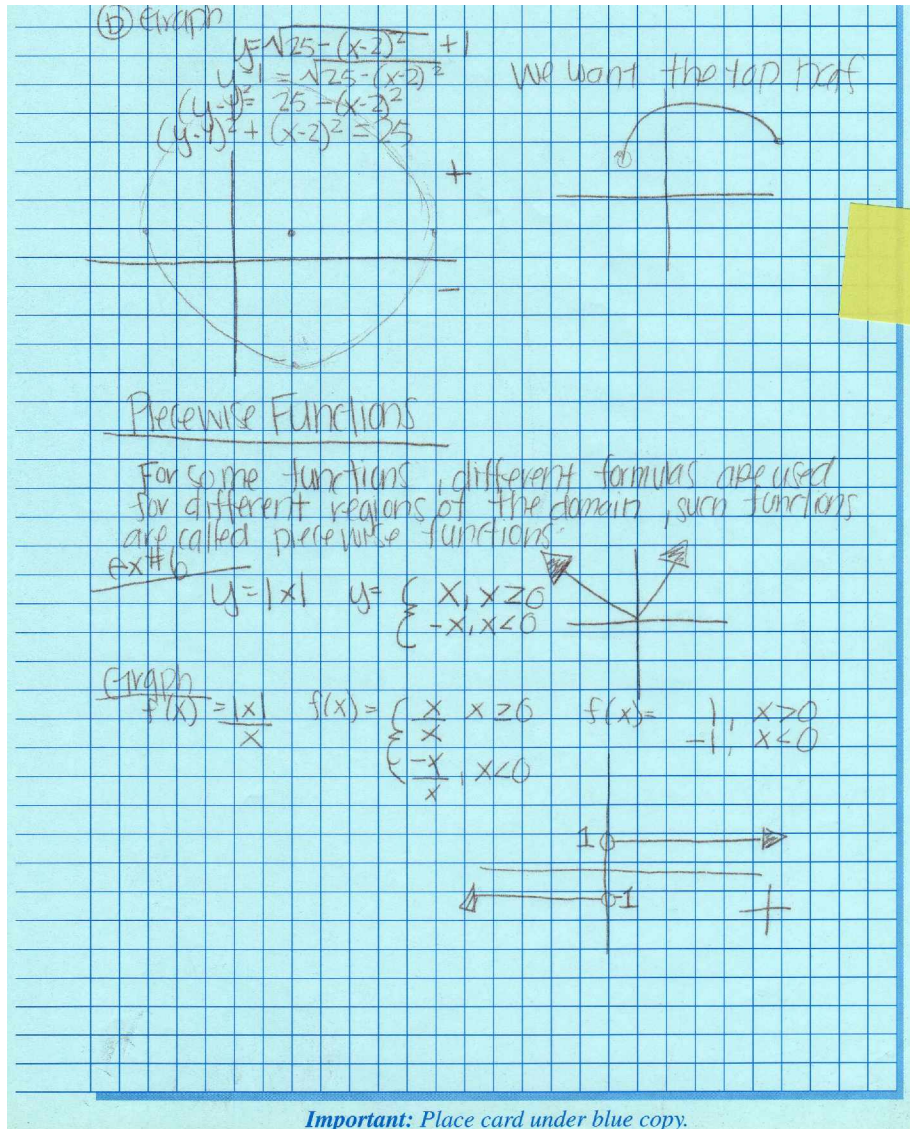 ⓑ Graph
y=√25-(x-2)² +1
y-1 = √25-(x-2)²
We want the top half
(y-1)²= 25-(x-2)²
(y-1)²+ (x-2)² = 25
+
-
Piecewise Functions
For some functions, different formulas are used
for different regions of the domain, such functions
are called piecewise functions.
ex#6
y=|x| y= { x, x≥0
-x, x<0
Graph
f(x) = |x|/x f(x) = { x/x x≥0 f(x)= 1, x>0
-1, x<0
-x/x, x<0
1
-1
Important: Place card under blue copy.